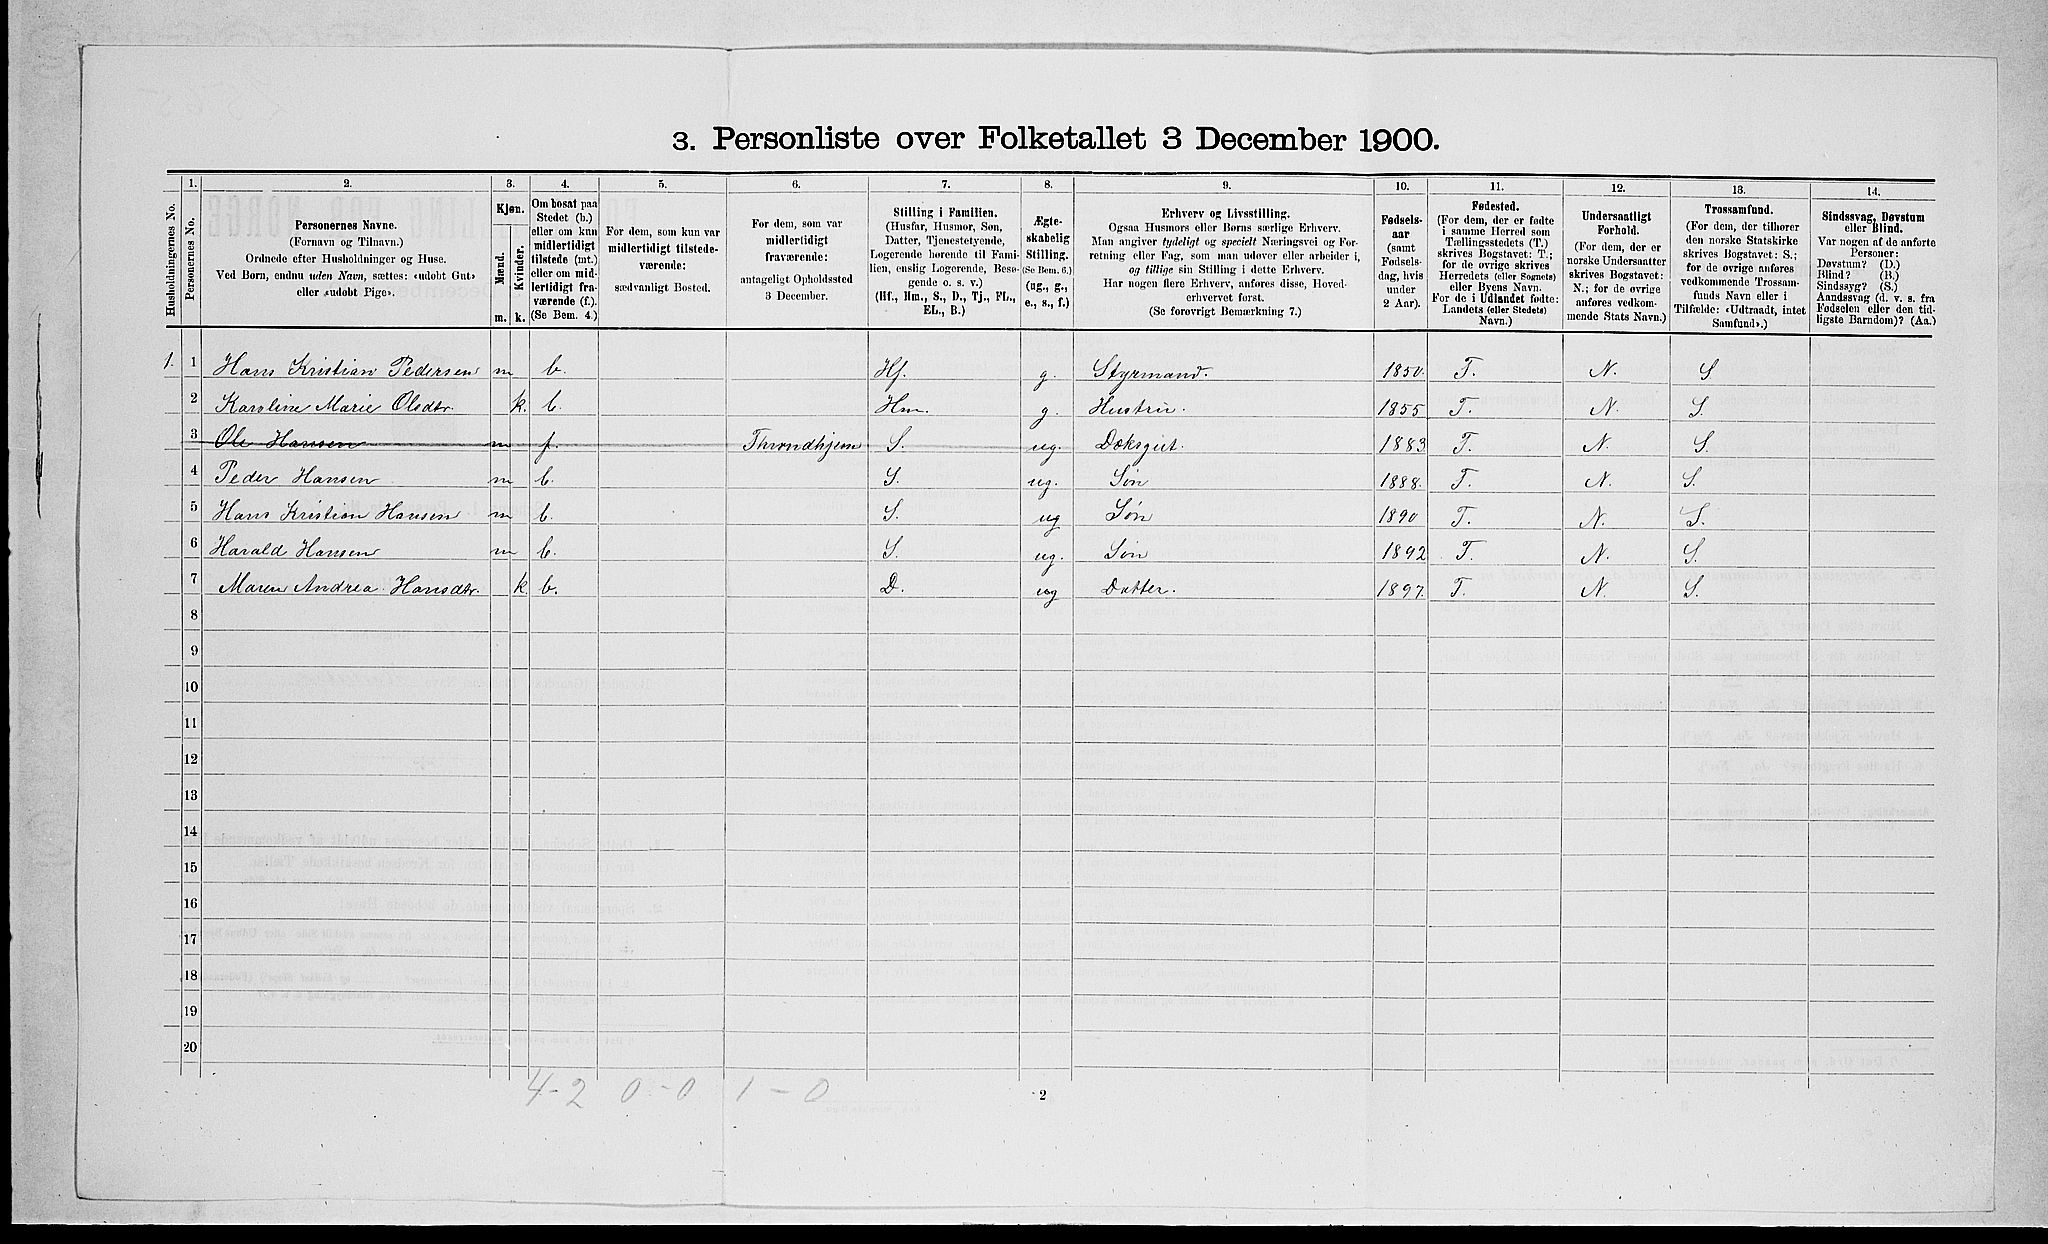 3. Personliste over Folketallet 3 December 1900.
Husholdningernes No.
1.
Personernes No.
2.
Personernes Navne.
(Fornavn og Tilnavn.)
Ordnede efter Husholdninger og Huse.
Ved Børn, endnu uden Navn, sættes: «udøbt Gut»
eller «udøbt Pige».
3.
Kjøn.
Mænd.
Kvinder.
m. k.
4.
Om bosat paa
Stedet (b.)
eller om kun
midlertidigt
tilstede (mt.)
eller om mid-
lertidigt fra-
værende (f.).
(Se Bem. 4.)
5.
For dem, som kun var
midlertidigt tilstede-
værende:
sædvanligt Bosted.
6.
For dem, som var
midlertidigt
fraværende:
antageligt Opholdssted
3 December.
7.
Stilling i Familien.
(Husfar, Husmor, Søn,
Datter, Tjenestetyende,
Logerende hørende til Fami-
lien, enslig Logerende, Besø-
gende o. s. v.)
(Hf., Hm., S., D., Tj., FL.,
EL., B.)
8.
Ægte-
skabelig
Stilling.
(Se Bem. 6.)
(ug., g.,
e., s., f.)
9.
Erhverv og Livsstilling.
Ogsaa Husmors eller Børns særlige Erhverv.
Man angiver tydeligt og specielt Næringsvei og For-
retning eller Fag, som man udøver eller arbeider i,
og tillige sin Stilling i dette Erhverv.
Har nogen flere Erhverv, anføres disse, Hoved-
erhvervet først.
(Se forøvrigt Bemærkning 7.)
10.
Fødsels-
aar
(samt
Fødsels-
dag, hvis
under
2 Aar).
11.
Fødested.
(For dem, der er fødte
i samme Herred som
Tællingsstedets (T.)
skrives Bogstavet: T.;
for de øvrige skrives
Herredets (eller Sognets)
eller Byens Navn.
For de i Udlandet fødte:
Landets (eller Stedets)
Navn.)
12.
Undersaatligt
Forhold.
(For dem, der er
norske Undersaatter
skrives Bogstavet:
N.; for de øvrige
anføres vedkom-
mende Stats Navn.)
13.
Trossamfund.
(For dem, der tilhører
den norske Statskirke
skrives Bogstavet: S.;
for de øvrige anføres
vedkommende Trossam-
funds Navn eller i
Tilfælde: «Udtraadt, intet
Samfund».)
14.
Sindssvag, Døvstum
eller Blind.
Var nogen af de anførte
Personer:
Døvstum? (D.)
Blind? (B.)
Sindssyg? (S.)
Aandssvag (d. v. s. fra
Fødselen eller den tid-
ligste Barndom)? (Aa.)
1. 1 Hans Kristian Pedersen m b. Hf. g. Styrmand. 1850. T. N. S.
2 Karoline Marie Olsdtr. k. b. Hm. g. Hustru. 1855 T. N. S.
3 Ole Hansen m f. Throndhjem S. ug. Dæksgut. 1883 T. N. S.
4 Peder Hansen m b. S. ug. Søn 1888. T. N. S.
5 Hans Kristian Hansen m b. S. ug Søn 1890 T. N. S.
6 Harald Hansen m b. S. ug. Søn 1892 T. N. S.
7 Maren Andrea Hansdtr. k. b. D. ug Datter. 1897. T. N. S.
8
9
10
11
12
13
14
15
16
17
18
19
20
4-2 0-0 1-0
2